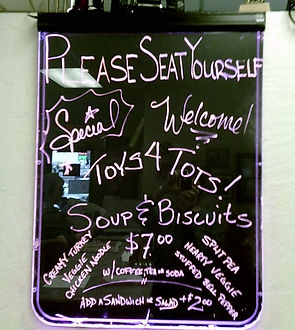 PLEASE SEAT YOURSELF
Special
Welcome!
TOYS 4 TOTS!
SOUP & BISCUITS
$7.00
CREAMY TURKEY
VEGGIE
CHICKEN NOODLE
SPLIT PEA
HEARTY VEGGIE
STUFFED BELL PEPPER
W/ COFFEE TEA OR SODA
ADD A SANDWICH OR SALAD +$2.00